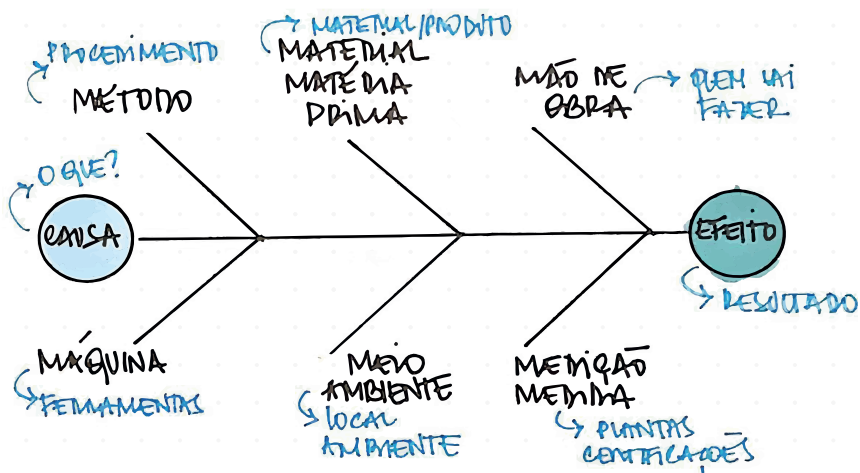 PROCEDIMENTO
MÉTODO
MATERIAL/PRODUTO
MATERIAL
MATÉRIA
PRIMA
MÃO DE
OBRA
QUEM VAI
FAZER
O QUE?
CAUSA
EFEITO
RESULTADO
MÁQUINA
FERRAMENTAS
MEIO
AMBIENTE
LOCAL
AMBIENTE
MEDIÇÃO
MEDIDA
PLANTAS
CERTIFICAÇÕES